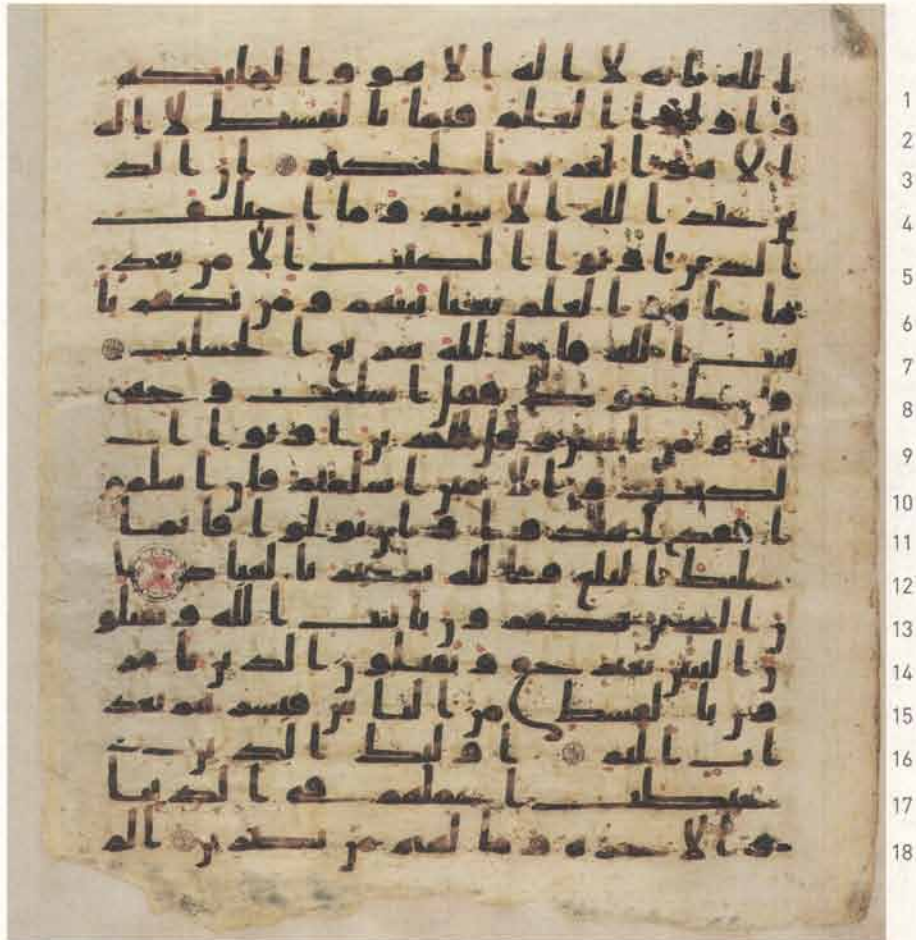 الله انه لا اله الا هو والمليكه
1
واولوا العلم قيما بالقسط لا اله
2
الا هو العزيز الحكيم ان الد
3
ين عند الله الاسلم وما اختلف
4
الذين اوتوا الكتب الا من بعد
5
ما جاهم العلم بغيا بينهم ومن يكفر با
6
يت الله فان الله سريع الحساب
7
فان حاجوك فقل اسلمت وجهي
8
لله ومن اتبعن وقل للذين اوتوا ا
9
لكتب والامين اسلمتم فان اسلمو
10
ا فقد اهتدوا وان تولوا فانما
11
عليك البلغ والله بصير بالعباد ا
12
ن الذين يكفرون بايت الله ويقتلو
13
ن النبين بغير حق ويقتلون الذين يامر
14
ون بالقسط من الناس فبشرهم بعذ
15
اب اليم اوليك الذين
16
حبطت اعملهم في الدنيا
17
والاخره وما لهم من نصرين الم
18